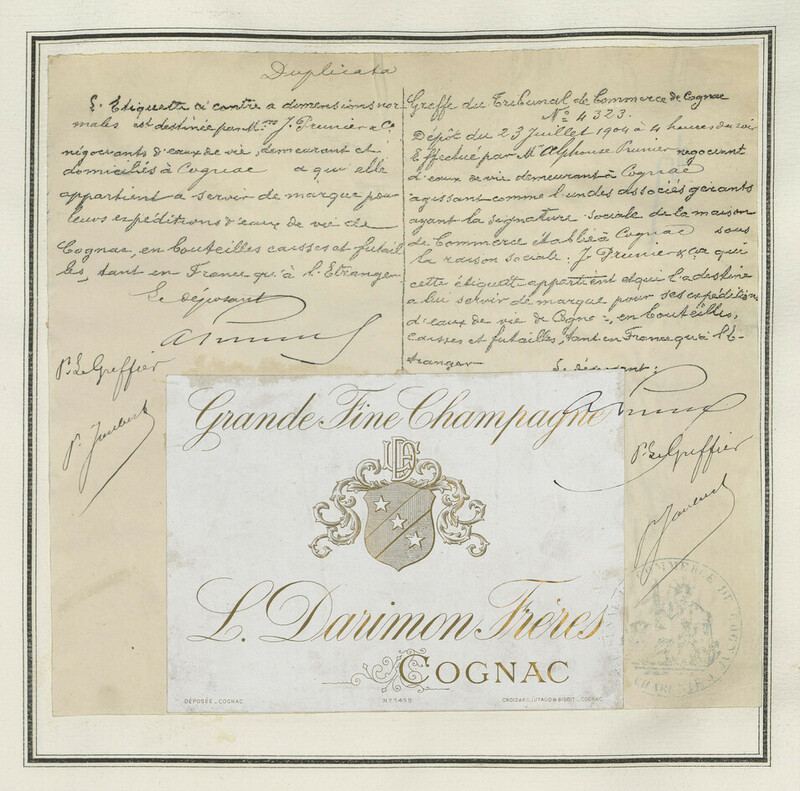 Duplicata
L'Etiquette ci contre a dimensions nor
males est destinée par M.rs J. Prunier & Co.
négociants d'eaux de vie, demeurant et
domiciliés à Cognac a qui elle
appartient a servir de marque pour
leurs expéditions d'eaux de vie de
Cognac, en bouteilles caisses et futail
les, tant en France qu'à l'Etranger
Le déposant
Pr Le Greffier
Greffe du Tribunal de Commerce de Cognac
No 4323.
Dépôt du 23 Juillet 1904 à 4 heures du soir
Effectué par Mr Alphonse Prunier négociant
d'eaux de vie demeurant à Cognac
agissant comme l'un des associés gérants
ayant la signature sociale de la maison
de Commerce établie à Cognac sous
la raison sociale: J. Prunier & Ca qui
cette étiquette appartient et qui l'a destine
a lui servir de marque pour ses expéditions
d'eaux de vie de Cogne =, en bouteilles,
caisses et futailles, tant en France qu'à l'E-
tranger
Le déposant:
Pr Le Greffier
Grande Fine Champagne
L. Darimon Frères
COGNAC
DÉPOSÉE _ COGNAC
No 5459
CROIZARD, LUTAUD & BIGOIT _ COGNAC
COMMERCE DE COGNAC
CHARENTE